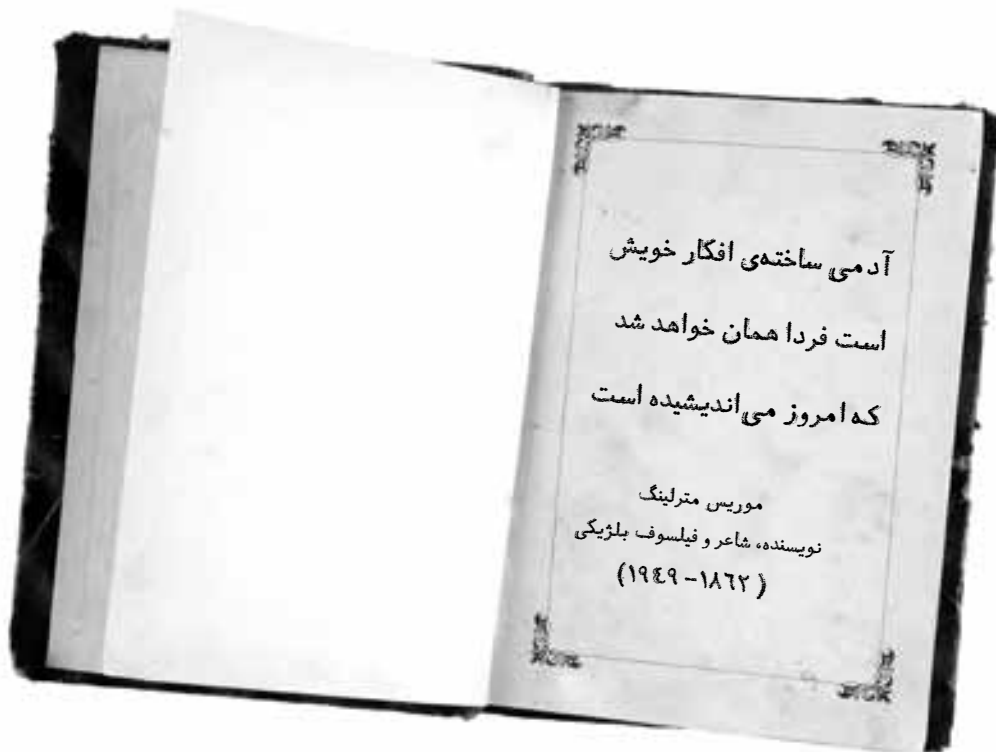 آدمی ساخته‌ی افکار خویش
است فردا همان خواهد شد
که امروز می‌اندیشیده است
موریس مترلینگ
نویسنده، شاعر و فیلسوف بلژیکی
(۱۸۶۲-۱۹۴۹)